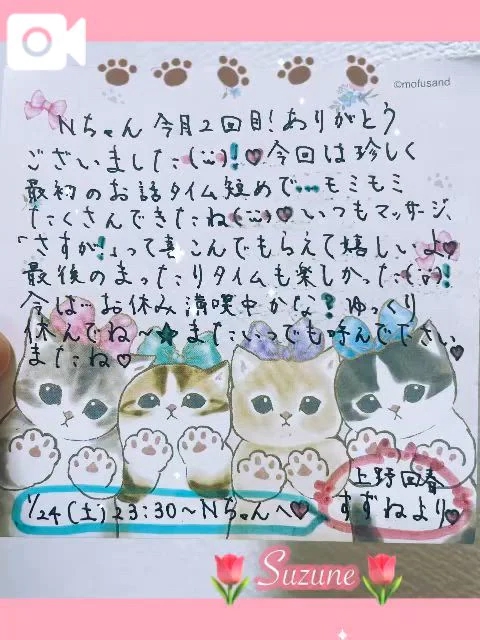 ©mofusand
Nちゃん 今月2回目!ありがとう
ございました(¨)!♥今回は珍しく
最初のお話タイム短めで…モミモミ
たくさんできたね(¨)♥いつもマッサージ、
「さすが!」って喜こんでもらえて嬉しいよ♥
最後のまったりタイムも楽しかった(¨)!
今は…お休み満喫中かな?ゆっくり
休んでね〜★またいつでも呼んで下さい
またね♡
上野回春
すずねより♥
1/24(土)23:30〜Nちゃんへ♡
Suzune